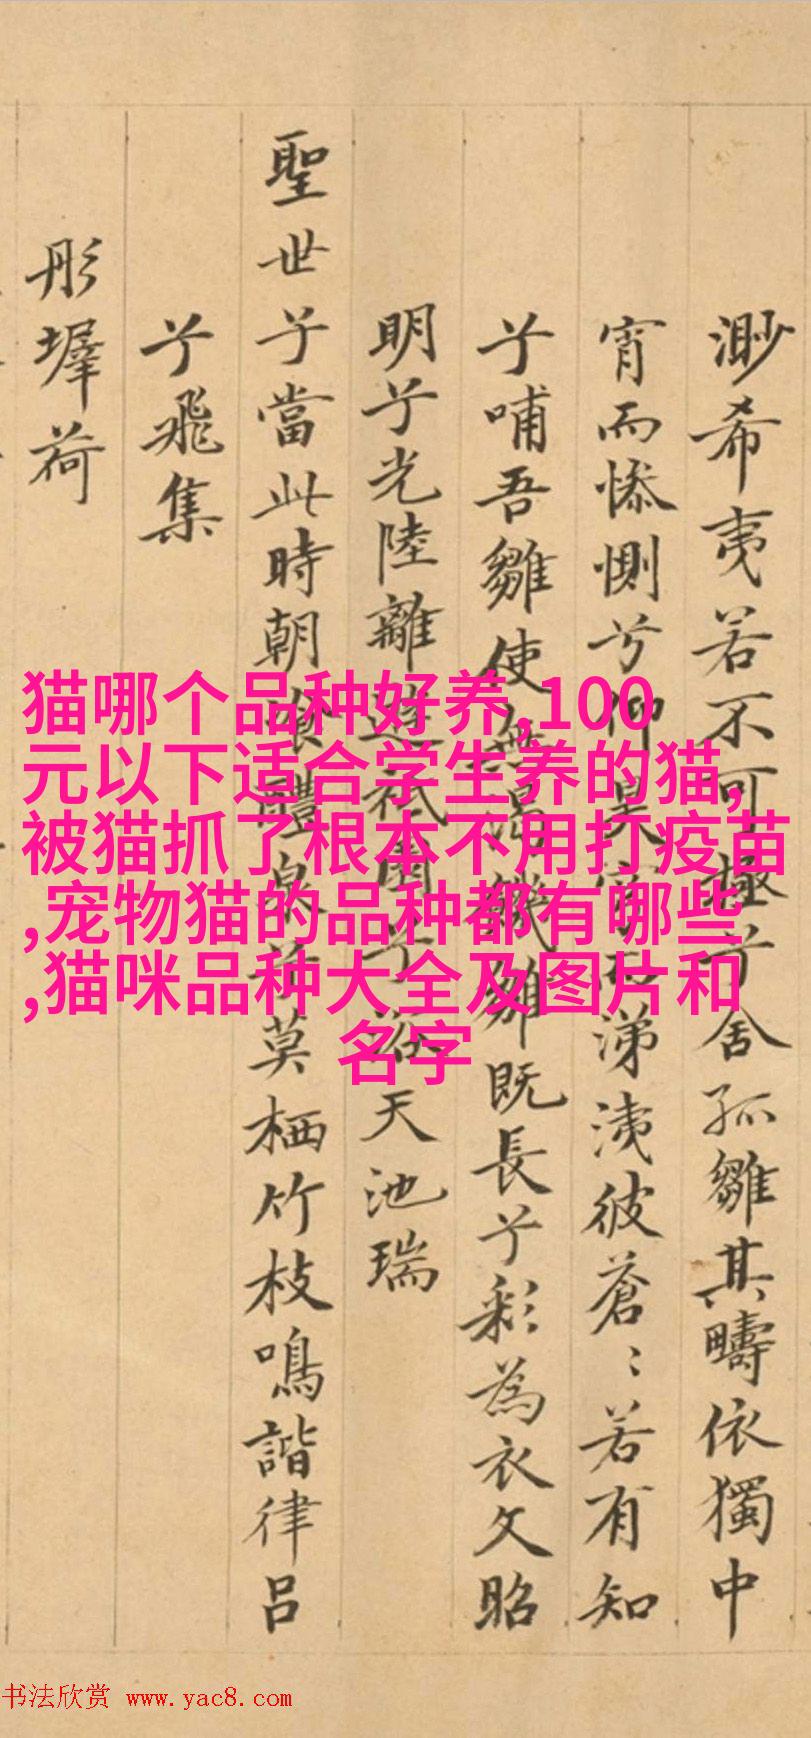 渺希夷若不可極兮舍孤雛其疇依獨中
宵而惨惻兮仰昊穹而涕洟彼蒼〻若有知
兮哺吾雛使無渴饑雛既長兮彩為衣文昭
明兮光陸離遊祇園兮浴天池瑞
聖世兮當此時朝飡醴泉兮莫栖竹枝鳴諧律吕
兮飛集
彤墀荷
猫哪个品种好养,100
元以下适合学生养的猫,
被猫抓了根本不用打疫苗
,宠物猫的品种都有哪些
,猫咪品种大全及图片和
名字
书法欣赏 www.yac8.com